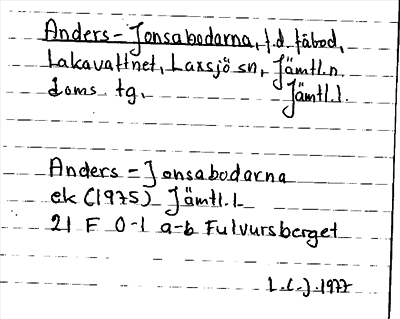 Anders-Jonsabodarna, f.d. fäbod,
Lakavattnet, Laxsjö sn, Jämtl.n.
doms. tg. Jämtl.l.
Anders-Jonsabodarna
ek (1975) Jämtl.l
21 F 0-1 a-b Fulvursberget
L.C.J. 1977